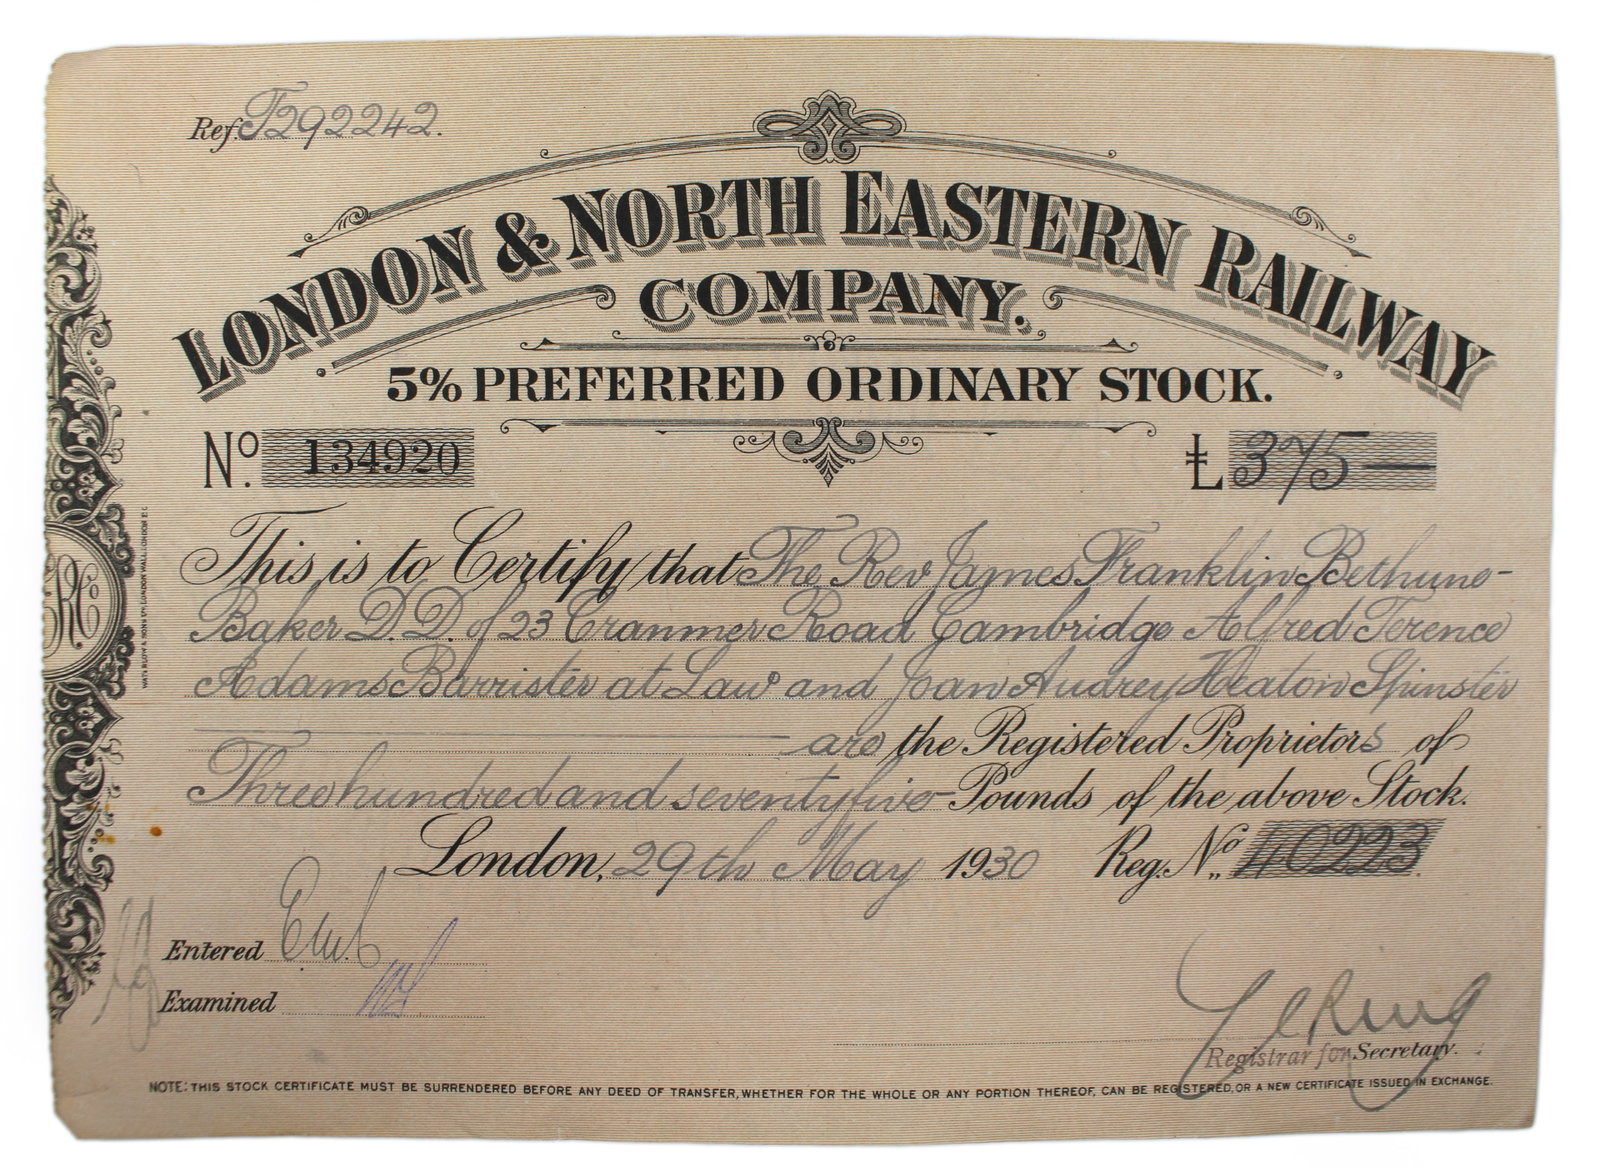 Ref. T292242.
LONDON & NORTH EASTERN RAILWAY
COMPANY.
5% PREFERRED ORDINARY STOCK.
No. 134920 £375—
This is to Certify that The Rev James Franklin Bethune-
Baker D.D. of 23 Cranmer Road Cambridge Alfred Terence
Adams Barrister at Law and Joan Audrey Heaton Spinster
are the Registered Proprietors of
Three hundred and seventy five Pounds of the above Stock.
London, 29th May 1930 Reg. No. 40223
Entered
Examined
Registrar for Secretary.
NOTE: THIS STOCK CERTIFICATE MUST BE SURRENDERED BEFORE ANY DEED OF TRANSFER, WHETHER FOR THE WHOLE OR ANY PORTION THEREOF, CAN BE REGISTERED, OR A NEW CERTIFICATE ISSUED IN EXCHANGE.